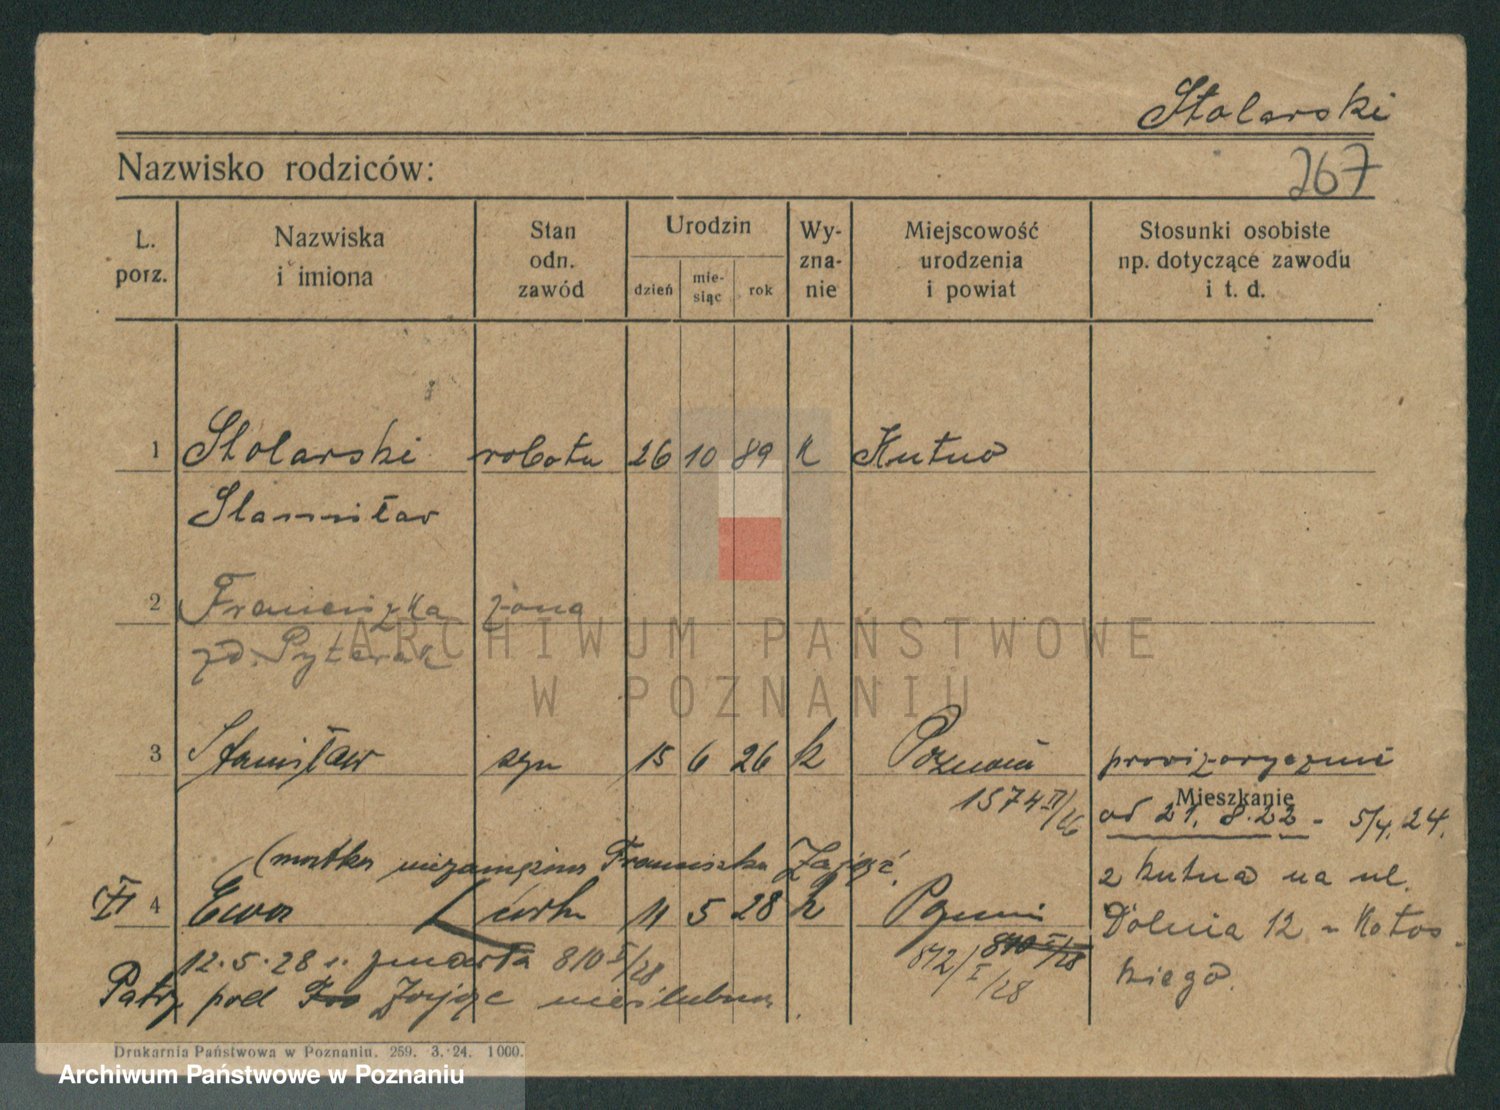 Stolarski
Nazwisko rodziców:
267
L. porz.
Nazwiska i imiona
Stan odn. zawód
Urodzin
dzień
mie-siąc
rok
Wy-zna-nie
Miejscowość urodzenia i powiat
Stosunki osobiste np. dotyczące zawodu i t. d.
1 Stolarski robotn 26 10 89 k Kutno
Stanisław
2 Franciszka żona
ARCHIWUM PAŃSTWOWE
zd. Pyterak
W POZNANIU
3 Stanisław syn 15 6 26 k Poznań prowizorycznie
1574 II/26
Mieszkanie
od 21. 8. 22 - 5/4. 24.
(matka niezamężna Franciszka Zając
z Kutna na ul.
4 Ewa córka 11 5 28 k Poznań
Dolnia 12 u Kołos-
12.5.28 r. zmarła 810 I/28
810 I/28
812/I/28
kiego.
Patrz pod Zając nieślubna
Drukarnia Państwowa w Poznaniu. 259. 3. 24. 1000.
Archiwum Państwowe w Poznaniu